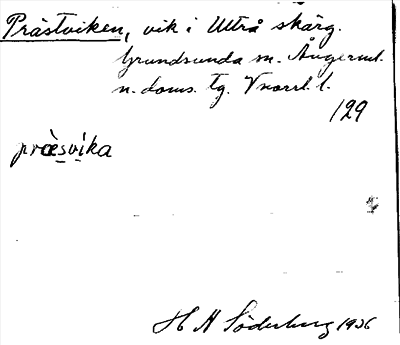 Prästviken, vik i Ultrå skärg.
Grundsunda sn. Ångerml.
n. doms. tg. Vnorrl. l.
129
præ̀svika
H A Söderberg 1936